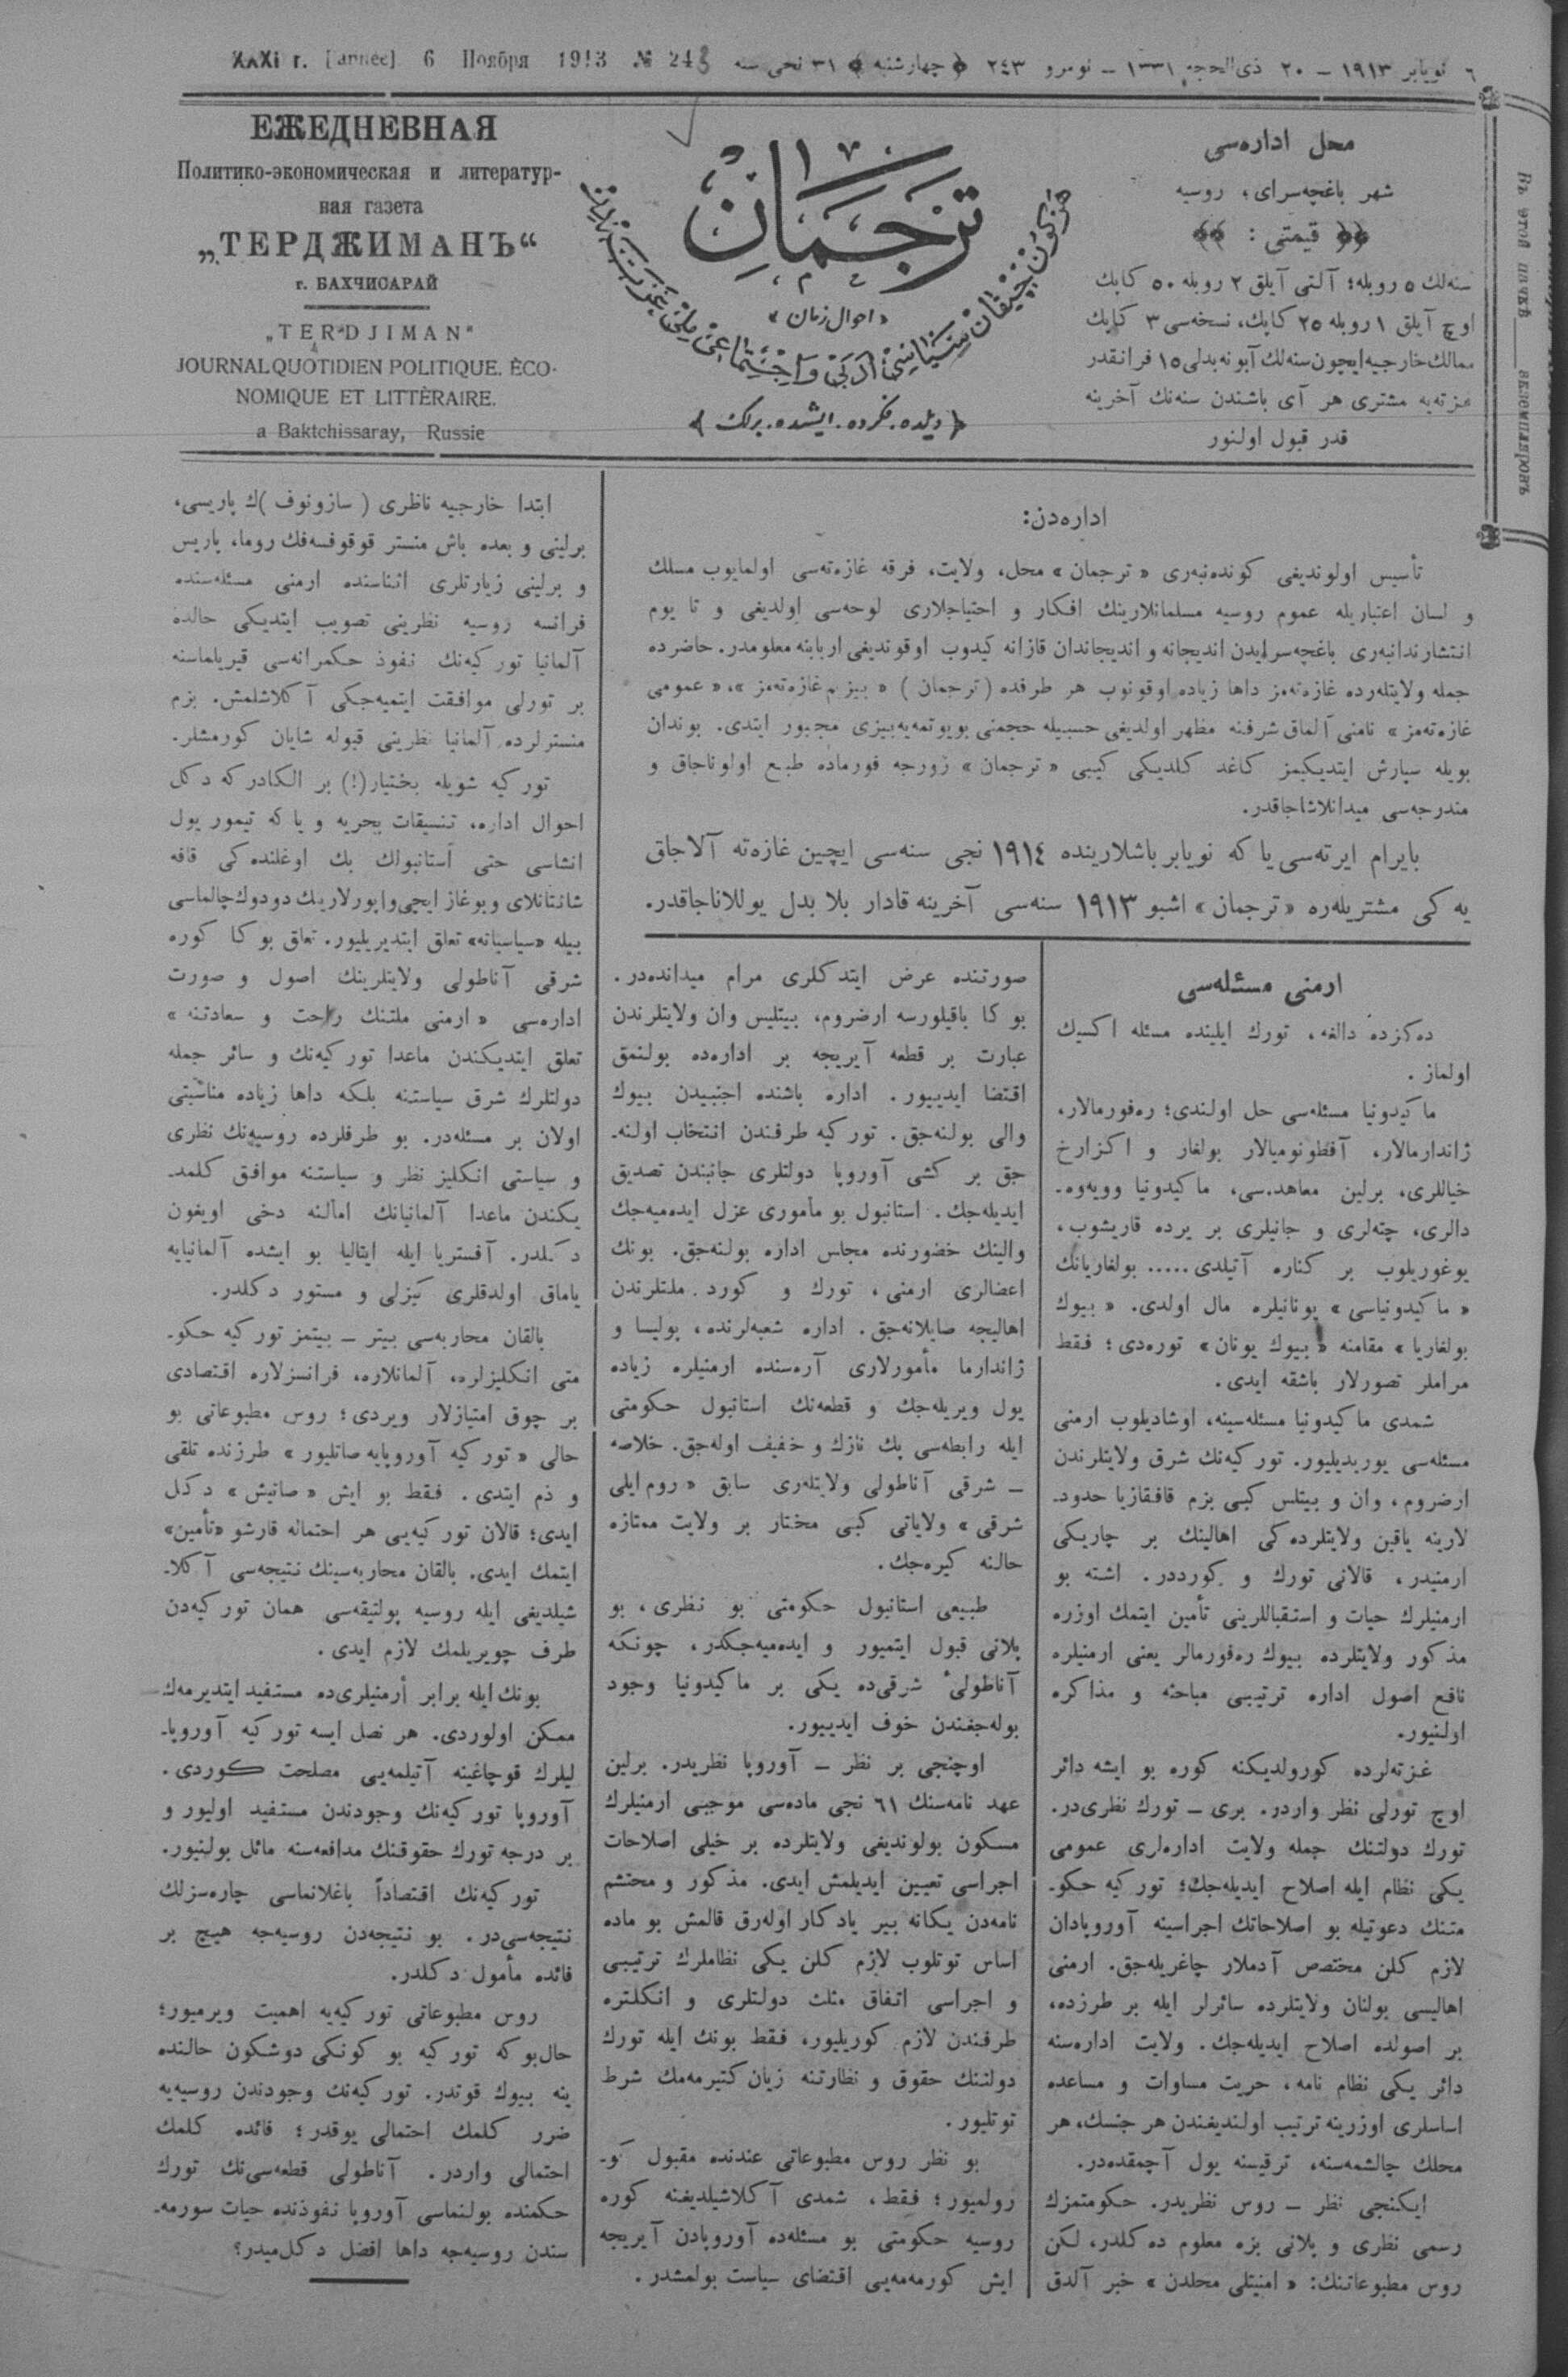 XXXI г. [année] 6 Ноября 1913 № 243
٦ نویابر ١٩١٣ – ٢٠ ذی‌الحجه ١٣٣١ – نومرو ٢٤٣ ﴿ چهارشنبه ﴾ ٣١ نجی سنه
ЕЖЕДНЕВНАЯ
Политико-экономическая и литератур-
ная газета
„ТЕРДЖИМАНЪ“
г. БАХЧИСАРАЙ
„TERDJIMAN“
JOURNAL QUOTIDIEN POLITIQUE. ÈCO-
NOMIQUE ET LITTÈRAIRE.
a Baktchissaray, Russie
ترجمان
«احوال زمان»
هرکون چیقان سیاسی، ادبی و اجتماعی ملی غزته‌در
﴿ دیلده. فکرده. ایشده. برلك ﴾
محل اداره‌سی
شهر باغچه‌سرای، روسیه
﴿﴿ قیمتی : ﴾﴾
سنه‌لك ٥ روبله؛ آلتی آیلق ٢ روبله ٥٠ کاپك
اوچ آیلق ١ روبله ٢٥ کاپك، نسخه‌سی ٣ کاپك
ممالك خارجیه ایچون سنه‌لك آبونه بدلی ١٥ فرانقدر
غزته‌یه مشتری هر آی باشندن سنه‌نك آخرینه
قدر قبول اولنور
اداره‌دن:
تأسیس اولوندیغی کونده‌نبه‌ری « ترجمان » محل، ولایت، فرقه غازه‌ته‌سی اولمایوب مسلك
و لسان اعتباریله عموم روسیه مسلمانلارینك افکار و احتیاجلاری لوحه‌سی اولدیغی و تا یوم
انتشارندانبه‌ری باغچه‌سرایدن اندیجانه و اندیجاندان قازانه کیدوب اوقوندیغی اربابنه معلومدر. حاضرده
جمله ولایتله‌رده غازه‌ته‌مز داها زیاده اوقونوب هر طرفده (ترجمان) « بیزیم غازه‌ته‌مز »، « عمومی
غازه‌ته‌مز » نامنی آلماق شرفنه مظهر اولدیغی حسبیله حجمنی بویوتمه‌یه بیزی مجبور ایتدی. بوندان
بویله سپارش ایتدیکیمز کاغد کلدیکی کیبی « ترجمان » زورجه فورماده طبع اولوناجاق و
مندرجه‌سی میدانلاشاجاقدر.
بایرام ایرته‌سی یا که نویابر باشلارینده ١٩١٤ نجی سنه‌سی ایچین غازه‌ته آلاجاق
یه کی مشتریله‌ره « ترجمان » اشبو ١٩١٣ سنه‌سی آخرینه قادار بلا بدل یوللاناجاقدر.
ارمنی مسئله‌سی
ده‌کزده دالغه، تورك ایلینده مسئله اکسیك
اولماز .
ماکیدونیا مسئله‌سی حل اولندی؛ ره‌فورمالار،
ژاندارمالار، آفطونومیالار بولغار و اکزارخ
خیاللری، برلین معاهده‌سی، ماکیدونیا وویه‌وه‌ـ
دالری، چته‌لری و جانیلری بر یرده قاریشوب،
یوغوریلوب بر کناره آتیلدی..... بولغاریانك
« ماکیدونیاسی » یونانیلره مال اولدی. « بیوك
بولغاریا » مقامنه « بیوك یونان » توره‌دی؛ فقط
مراملر تصورلار باشقه ایدی.
شمدی ماکیدونیا مسئله‌سینه، اوشادیلوب ارمنی
مسئله‌سی یوریدیلیور. تورکیه‌نك شرق ولایتلرندن
ارضروم، وان و بیتلس کبی بزم قافقازیا حدودـ
لارینه یاقین ولایتلرده‌کی اهالینك بر چاریکی
ارمنیدر، قالانی تورك و کورددر. اشته بو
ارمنیلرك حیات و استقباللرینی تأمین ایتمك اوزره
مذکور ولایتلرده بیوك ره‌فورمالر یعنی ارمنیلره
نافع اصول اداره ترتیبی مباحثه و مذاکره
اولنیور.
غزته‌لرده کورولدیکنه کوره بو ایشه دائر
اوچ تورلی نظر واردر. بری – تورك نظری‌در.
تورك دولتنك جمله ولایت اداره‌لری عمومی
یکی نظام ایله اصلاح ایدیله‌جك؛ تورکیه حکوـ
متنك دعوتیله بو اصلاحاتك اجراسینه آوروپادان
لازم کلن مختصص آدملار چاغریله‌جق. ارمنی
اهالیسی بولنان ولایتلرده سائرلر ایله بر طرزده،
بر اصولده اصلاح ایدیله‌جك. ولایت اداره‌سنه
دائر یکی نظام نامه، حریت مساوات و مساعده
اساسلری اوزرینه ترتیب اولندیغندن هر جنسك، هر
محلك چالشمه‌سنه، ترقیسنه یول آچمقده‌در.
ایکنجی نظر – روس نظریدر. حکومتمزك
رسمی نظری و پلانی بزه معلوم ده‌کلدر، لکن
روس مطبوعاتنك: « امنیتلی محلدن » خبر آلدق
صورتنده عرض ایتدکلری مرام میدانده‌در.
بوکا باقیلورسه ارضروم، بیتلیس وان ولایتلرندن
عبارت بر قطعه آیریجه بر اداره‌ده بولنمق
اقتضا ایدییور. اداره باشنده اجنبیدن بیوك
والی بولنه‌جق. تورکیه طرفندن انتخاب اولنه‌ـ
جق بر کشی آوروپا دولتلری جانبندن تصدیق
ایدیله‌جك. استانبول بو مأموری عزل ایده‌میه‌جك
والینك حضورنده مجلس اداره بولنه‌جق. بونك
اعضالری ارمنی، تورك و کورد ملتلرندن
اهالیجه صایلانه‌جق. اداره شعبه‌لرنده، پولیسا و
ژاندارما مأمورلاری آره‌سنده ارمنیلره زیاده
یول ویریله‌جك و قطعه‌نك استانبول حکومتی
ایله رابطه‌سی پك نازك و خفیف اوله‌جق. خلاصه
– شرقی آناطولی ولایتله‌ری سابق « روم ایلی
شرقی » ولایاتی کبی مختار بر ولایت ممتازه
حالنه کیره‌جك.
طبیعی استانبول حکومتی بو نظری، بو
پلانی قبول ایتمیور و ایده‌میه‌جکدر، چونکه
آناطولیٔ شرقی‌ده یکی بر ماکیدونیا وجود
بوله‌جغندن خوف ایدییور.
اوچنجی بر نظر – آوروپا نظریدر. برلین
عهد نامه‌سنك ٦١ نجی ماده‌سی موجبی ارمنیلرك
مسکون بولوندیغی ولایتلرده بر خیلی اصلاحات
اجراسی تعیین ایدیلمش ایدی. مذکور و محتشم
نامه‌دن یکانه بیر یادکار اوله‌رق قالمش بو ماده
اساس توتلوب لازم کلن یکی نظاملرك ترتیبی
و اجراسی اتفاق مثلث دولتلری و انکلتره
طرفندن لازم کوریلیور، فقط بونك ایله تورك
دولتنك حقوق و نظارتنه زیان کتیرمه‌مك شرط
توتلیور.
بو نظر روس مطبوعاتی عندنده مقبول کوـ
رولمیور؛ فقط، شمدی آکلاشیلدیغنه کوره
روسیه حکومتی بو مسئله‌ده آوروپادن آیریجه
ایش کورمه‌مه‌یی اقتضای سیاست بولمشدر.
ابتدا خارجیه ناظری ( سازونوف )ك پاریسی،
برلینی و بعده باش منستر قوقوفسه‌فك روما، پاریس
و برلینی زیارتلری اثناسنده ارمنی مسئله‌سنده
فرانسه روسیه نظرینی تصویب ایتدیکی حالده
آلمانیا تورکیه‌نك نفوذ حکمرانه‌سی قیریلماسنه
بر تورلی موافقت ایتمیه‌جکی آکلاشلمش. بزم
منسترلرده آلمانیا نظرینی قبوله شایان کورمشلر.
تورکیه شویله بختیار(!) بر الکادرکه دکل
احوال اداره، تنسیقات بحریه و یا که تیمور یول
انشاسی حتی أستانبولك بك اوغلنده‌کی قافه
شانتانلای و بوغاز ایچی واپورلارینك دودوك چالماسی
بیله «سیاسیاته» تعلق ایتدیریلیور. تعلق بوکا کوره
شرقی آناطولی ولایتلرینك اصول و صورت
اداره‌سی « ارمنی ملتنك راحت و سعادتنه »
تعلق ایتدیکندن ماعدا تورکیه‌نك و سائر جمله
دولتلرك شرق سیاستنه بلکه داها زیاده مناسبتی
اولان بر مسئله‌در. بو طرفلرده روسیه‌نك نظری
و سیاستی انکلیز نظر و سیاستنه موافق کلمدـ
یکندن ماعدا آلمانیانك امالنه دخی اویغون
دکلدر. آفستریا ایله ایتالیا بو ایشده آلمانیایه
یاماق اولدقلری کیزلی و مستور دکلدر.
بالقان محاربه‌سی بیتر – بیتمز تورکیه حکوـ
متی انکلیزلره، آلمانلاره، فرانسزلاره اقتصادی
بر چوق امتیازلار ویردی؛ روس مطبوعاتی بو
حالی « تورکیه آوروپایه صاتلیور » طرزنده تلقی
و ذم ایتدی. فقط بو ایش « صاتیش » دکل
ایدی؛ قالان تورکیه‌یی هر احتماله قارشو «تأمین»
ایتمك ایدی. بالقان محاربه‌سینك نتیجه‌سی آکلاـ
شیلدیغی ایله روسیه پولتیقه‌سی همان تورکیه‌دن
طرف چویریلمك لازم ایدی.
بونك ایله برابر أرمنیلری‌ده مستفید ایتدیرمه‌ك
ممکن اولوردی. هر نصل ایسه تورکیه آوروپاـ
لیلرك قوچاغینه آتیلمه‌یی مصلحت کوردی.
آوروپا تورکیه‌نك وجودندن مستفید اولیور و
بر درجه تورك حقوقنك مدافعه‌سنه مائل بولنیور.
تورکیه‌نك اقتصاداً باغلانماسی چاره‌سزلك
نتیجه‌سی‌در. بو نتیجه‌دن روسیه‌جه هیچ بر
فائده مأمول دکلدر.
روس مطبوعاتی تورکیه‌یه اهمیت ویرمیور؛
حال‌بوکه تورکیه بو کونکی دوشکون حالنده
ینه بیوك قوتدر. تورکیه‌نك وجودندن روسیه‌یه
ضرر کلمك احتمالی یوقدر؛ فائده کلمك
احتمالی واردر. آناطولی قطعه‌سی‌نك تورك
حکمنده بولنماسی آوروپا نفوذنده حیات سورمه‌ـ
سندن روسیه‌جه داها افضل دکل‌میدر؟
Въ этой пачкѣ ____ экземпляровъ